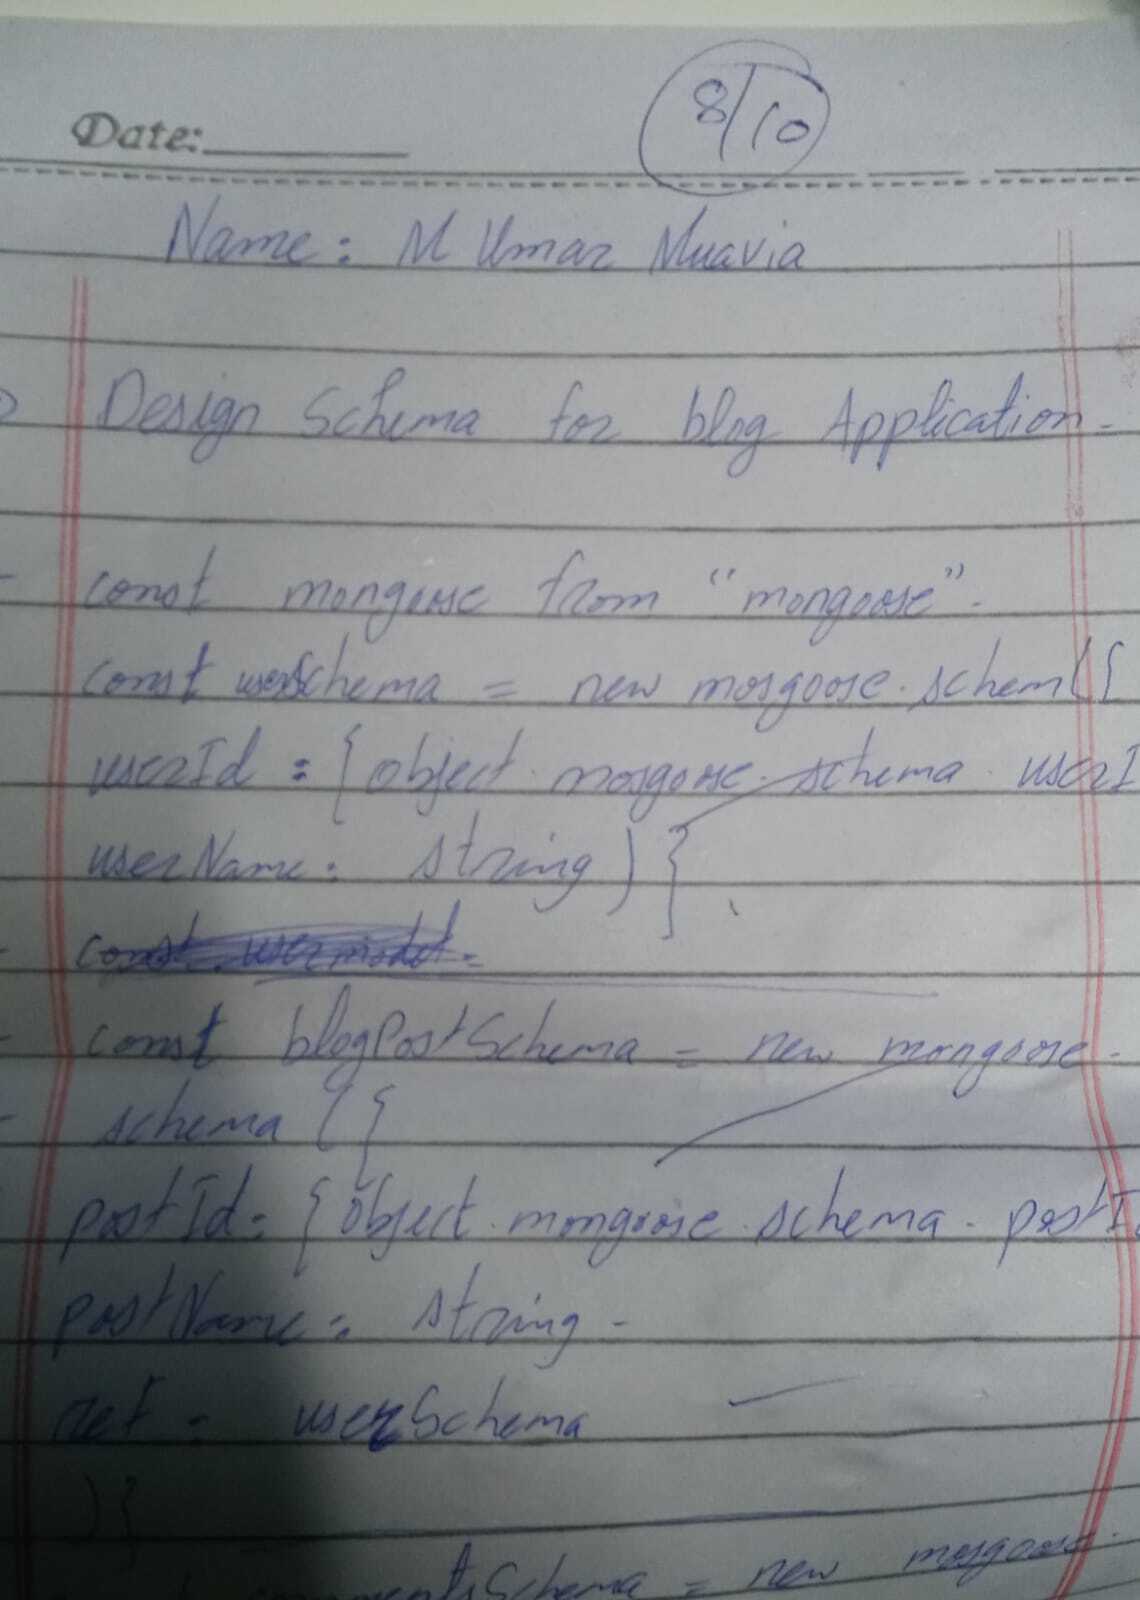 8/10
Date:
Name: M Umar Muavia
Design Schema for blog Application.
const mongoose from "mongoose".
const userSchema = new mosgoose.schem({
userId = {object.mosgoose.schema.userI
userName: string)}
const usermodel =
const blogPostSchema = new mongoose.
schema ({
postId = {object.mongoose.schema.postI
postName: string -
ref = userSchema
)}
= new mosgoose.